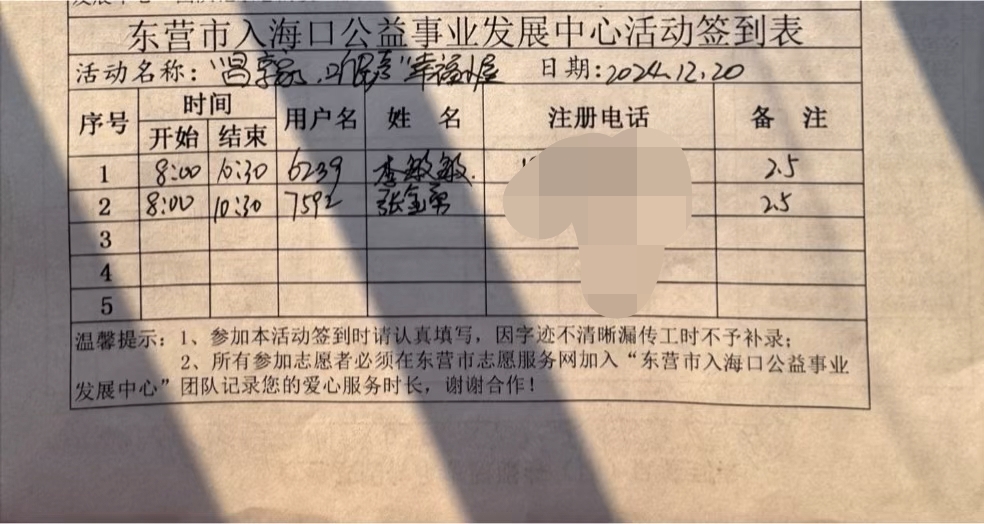 东营市入海口公益事业发展中心活动签到表
活动名称: 幸福小屋 日期:2024.12.20
序号 时间 用户名 姓 名 注册电话 备 注
开始 结束
1 8:00 10:30 6239 李敏敏. 2.5
2 8:00 10:30 7592 张金勇 2.5
3
4
5
温馨提示:1、参加本活动签到时请认真填写,因字迹不清晰漏传工时不予补录;
2、所有参加志愿者必须在东营市志愿服务网加入“东营市入海口公益事业
发展中心”团队记录您的爱心服务时长,谢谢合作!